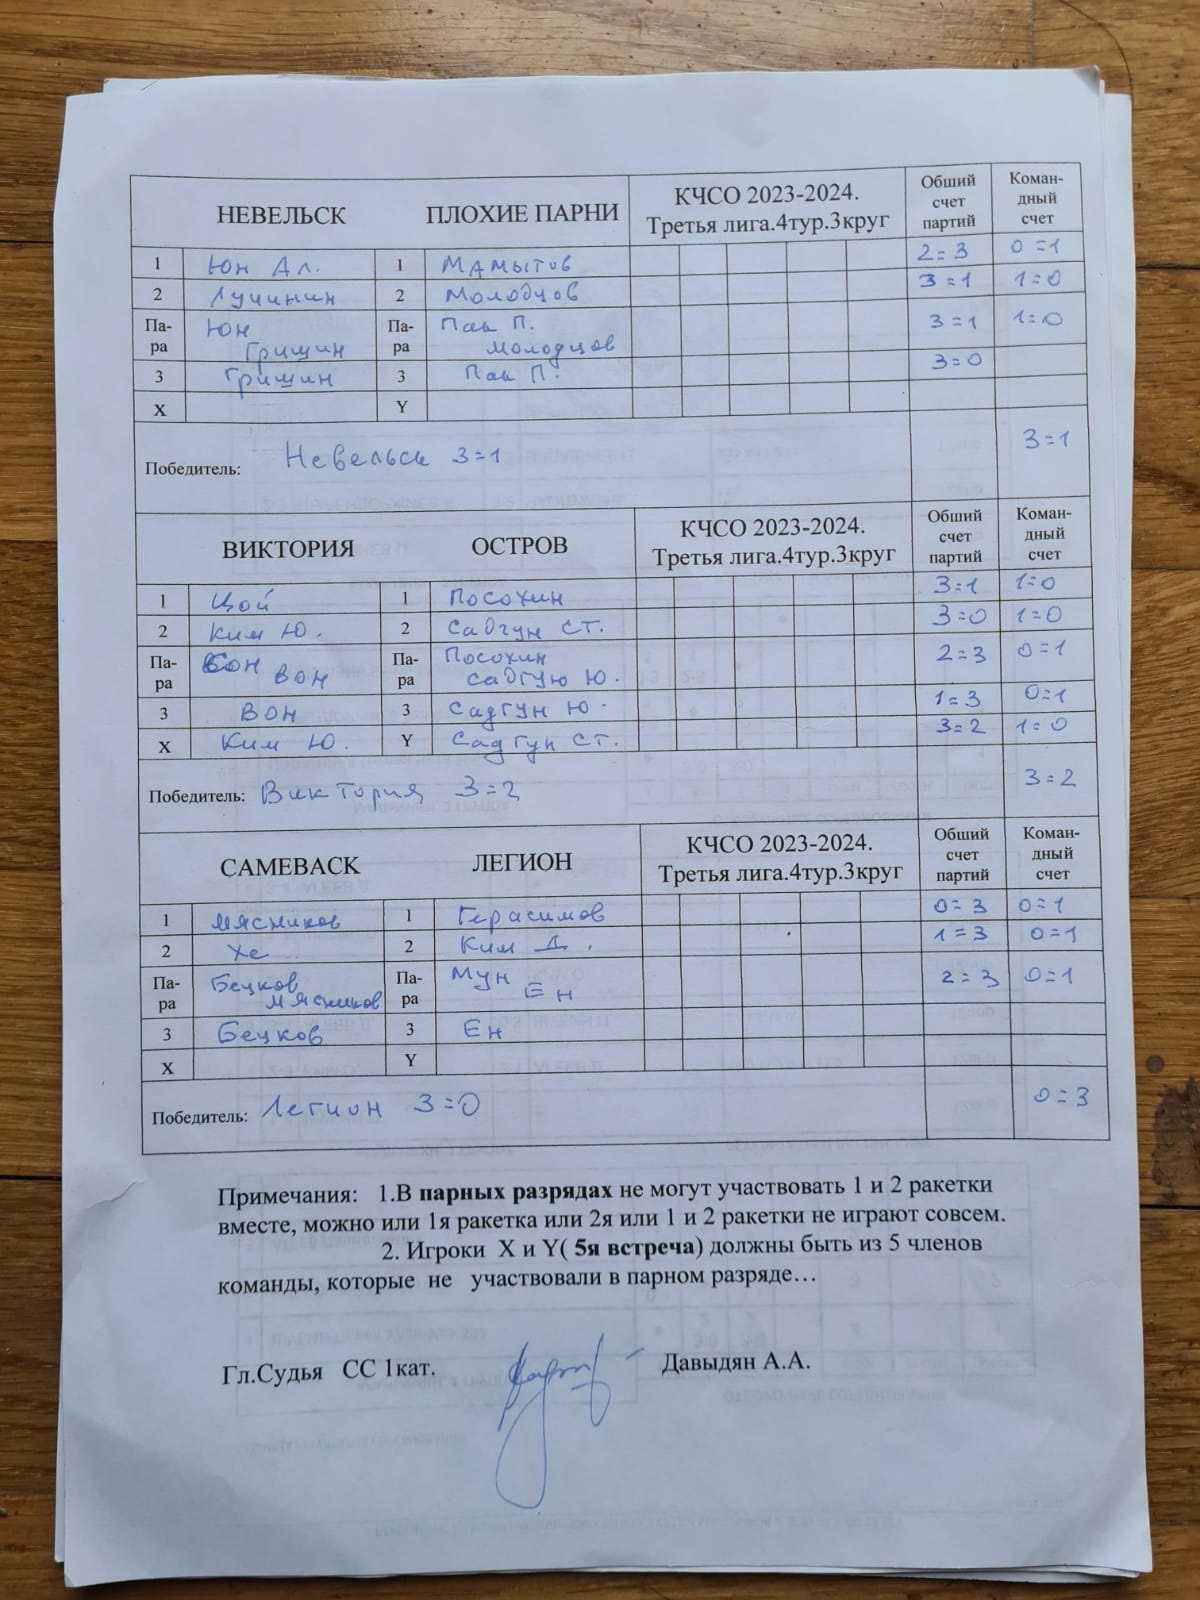 НЕВЕЛЬСК ПЛОХИЕ ПАРНИ КЧСО 2023-2024. Третья лига.4тур.3круг Обший счет партий Коман-дный счет
1 Юн Ал. 1 Мамытов 2=3 0=1
2 Лучинин 2 Молодцов 3=1 1=0
Па-ра Юн Гришин Па-ра Пак П. Молодцов 3=1 1=0
3 Гришин 3 Пак П. 3=0
X Y
Победитель: Невельск 3=1 3=1
ВИКТОРИЯ ОСТРОВ КЧСО 2023-2024. Третья лига.4тур.3круг Обший счет партий Коман-дный счет
1 Цой 1 Посохин 3=1 1=0
2 Ким Ю. 2 Садгун Ст. 3=0 1=0
Па-ра Вон Па-ра Посохин Садгую Ю. 2=3 0=1
3 Вон 3 Садгун Ю. 1=3 0=1
X Ким Ю. Y Садгун Ст. 3=2 1=0
Победитель: Виктория 3=2 3=2
САМЕВАСК ЛЕГИОН КЧСО 2023-2024. Третья лига.4тур.3круг Обший счет партий Коман-дный счет
1 Мясников 1 Герасимов 0=3 0=1
2 Хе 2 Ким Д. 1=3 0=1
Па-ра Бецков Мясников Па-ра Мун Ен 2=3 0=1
3 Бецков 3 Ен
X Y
Победитель: Легион 3=0 0=3
Примечания: 1.В парных разрядах не могут участвовать 1 и 2 ракетки
вместе, можно или 1я ракетка или 2я или 1 и 2 ракетки не играют совсем.
2. Игроки X и Y( 5я встреча) должны быть из 5 членов
команды, которые не участвовали в парном разряде…
Гл.Судья СС 1кат. Давыдян А.А.